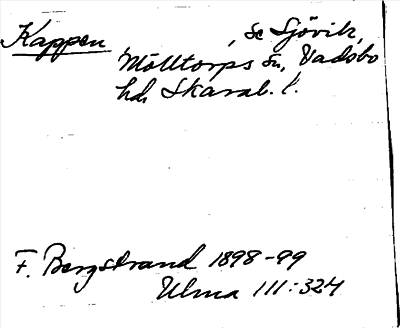 Kappen, se Sjövik,
Mölltorps sn, Vadsbo
hd, Skarab. l.
F. Bergstrand 1898-99
Ulma 111:324